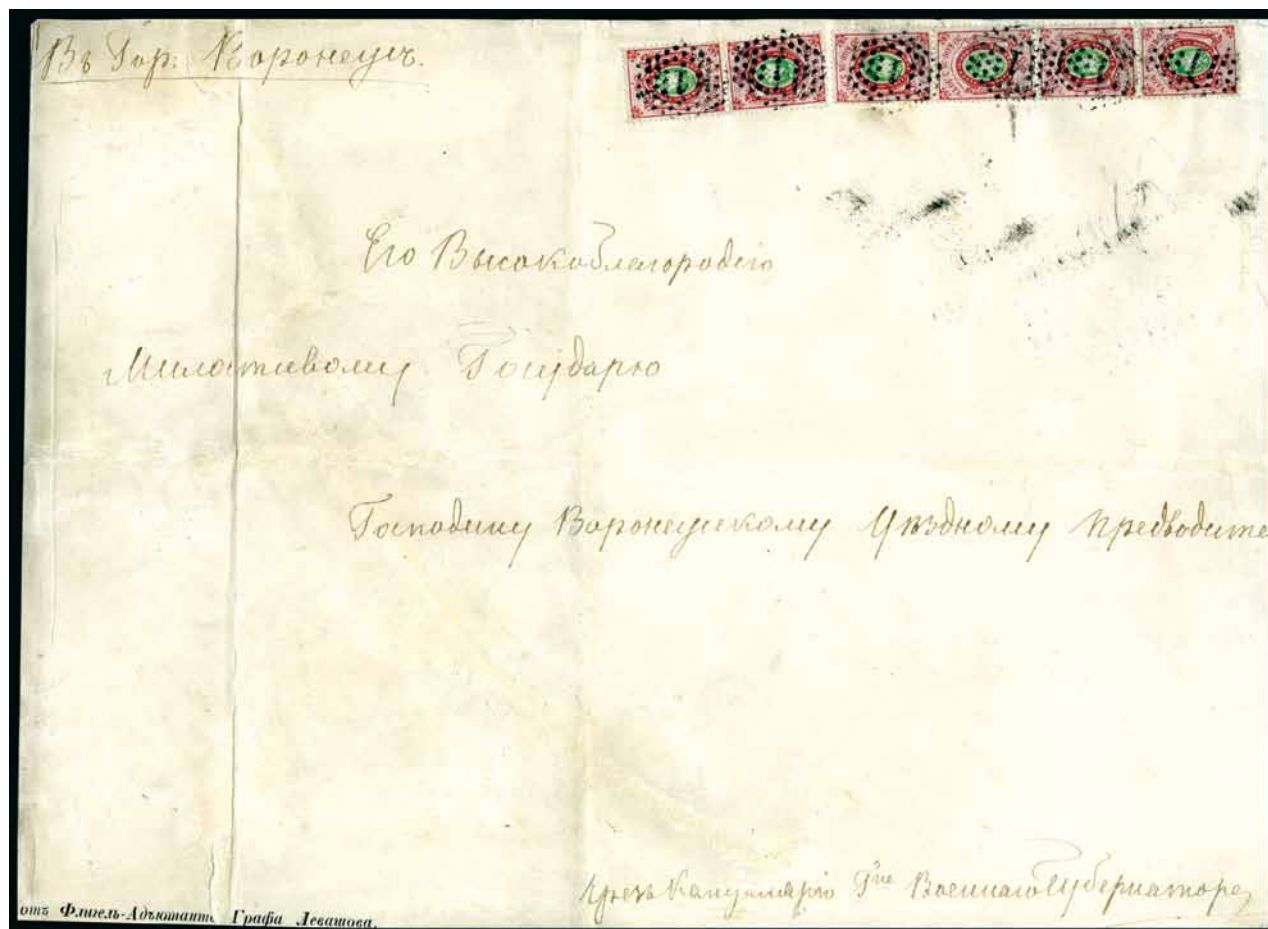 Въ Гор. Воронежъ.
Его Высокоблагородію
Милостивому Государю
Господину Воронежскому Уѣздному Предводите
Чрезъ Канцелярію Гна Военнаго Губернатора
отъ Флигель-Адъютанта Графа Левашова.